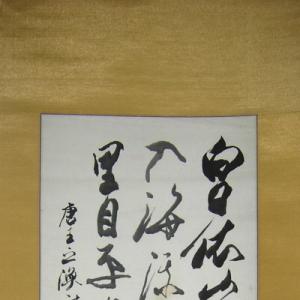 白日依山
入海流
里目更
唐王之涣